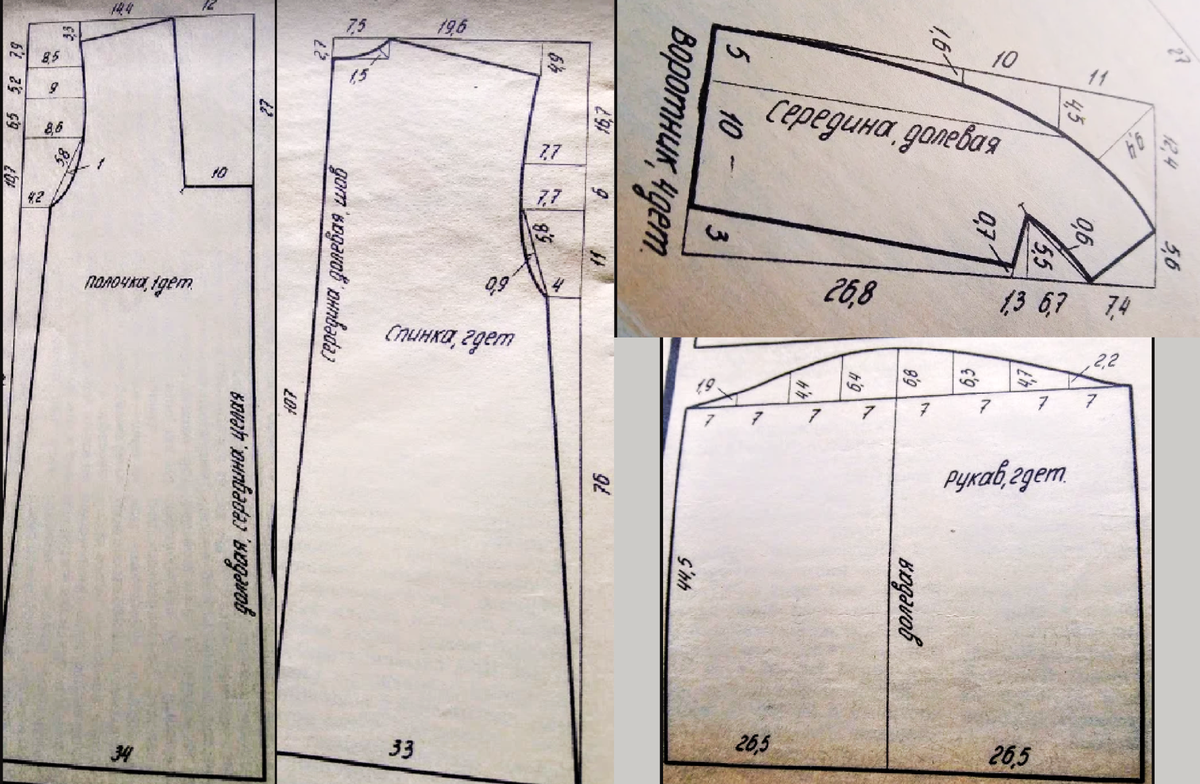 14,4
12
3,3
7,9
8,5
5,2
9
6,5
8,6
5,8
1
10,7
4,2
27
10
полочка, 1дет.
долевая, середина, целая
34
7,5
19,6
2,7
1,5
4,9
16,7
7,7
6
7,7
5,8
11
0,9
4
середина, долевая, шов
Спинка, 2дет
107
76
33
1,6
10
11
27
5
4,5
9,4
12,4
середина, долевая
10
Воротник, 4дет.
0,7
0,6
5,5
5,6
3
26,8
1,3
6,7
7,4
1,9
4,4
6,4
6,8
6,3
4,7
2,2
7
7
7
7
7
7
7
7
рукав, 2дет.
44,5
долевая
26,5
26,5